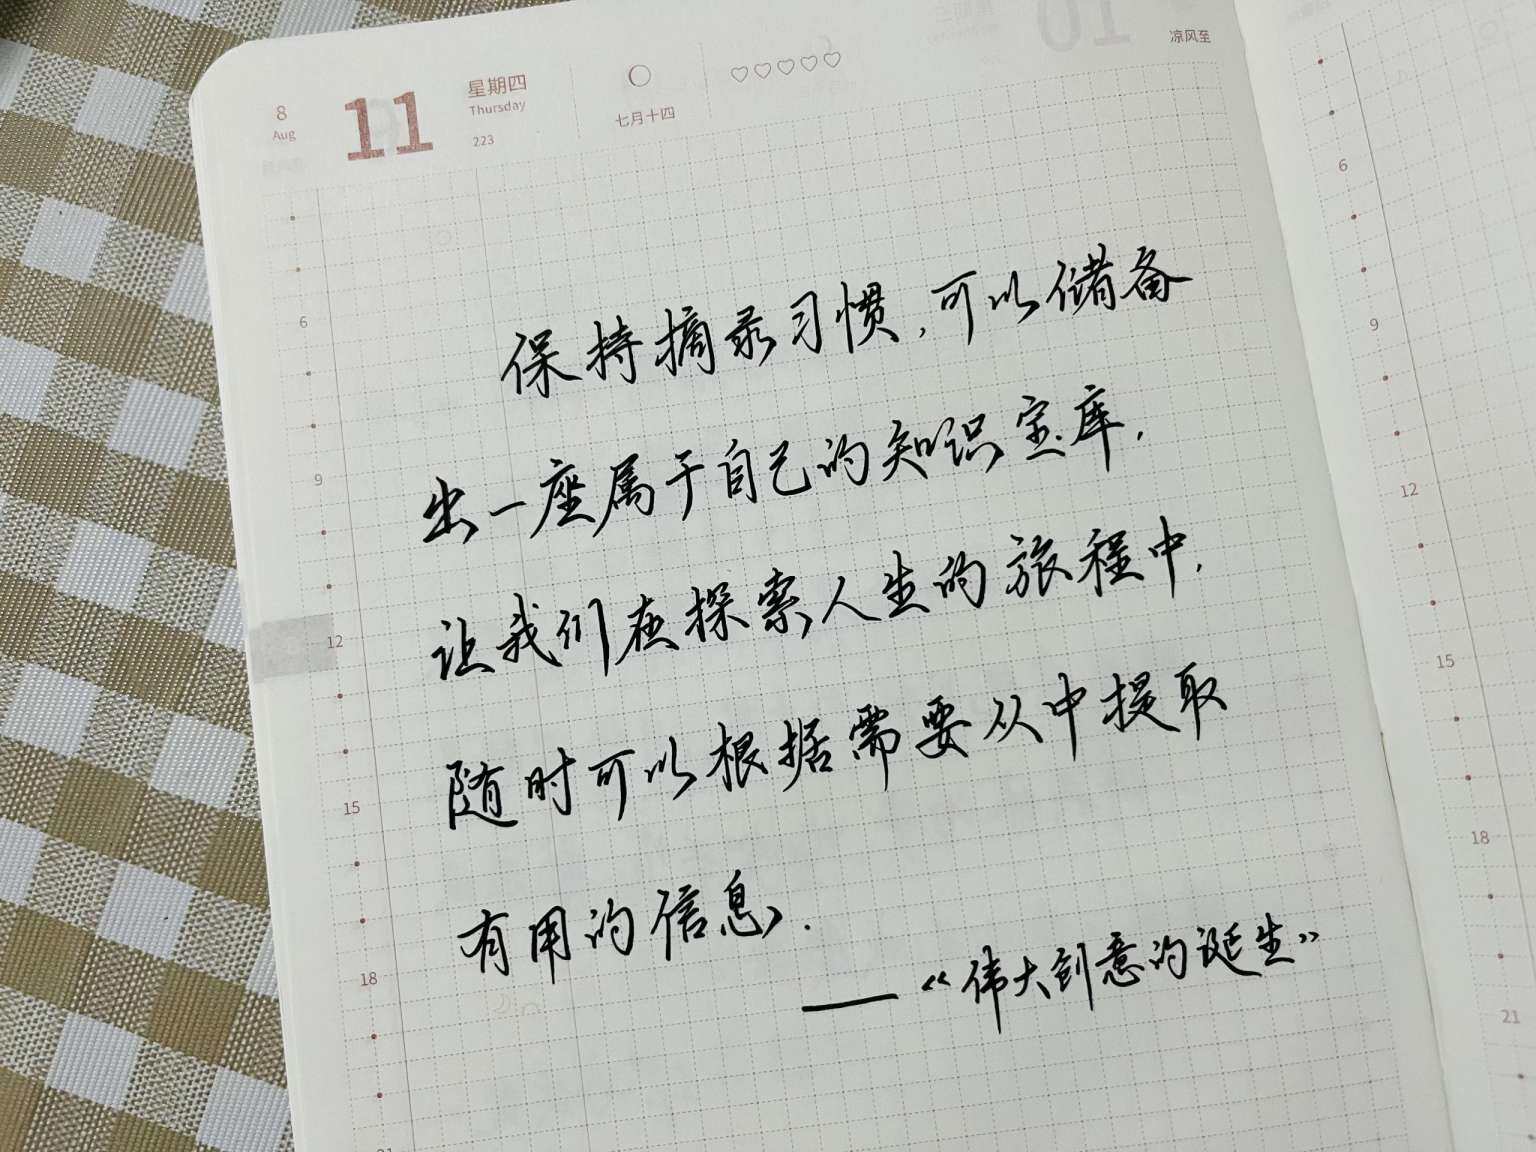 8
Aug
11
星期四
Thursday
223
七月十四
凉风至
01
6
9
12
15
18
21
保持摘录习惯,可以储备
出一座属于自己的知识宝库,
让我们在探索人生的旅程中,
随时可以根据需要从中提取
有用的信息.
——《伟大创意的诞生》
6
9
12
15
18
21